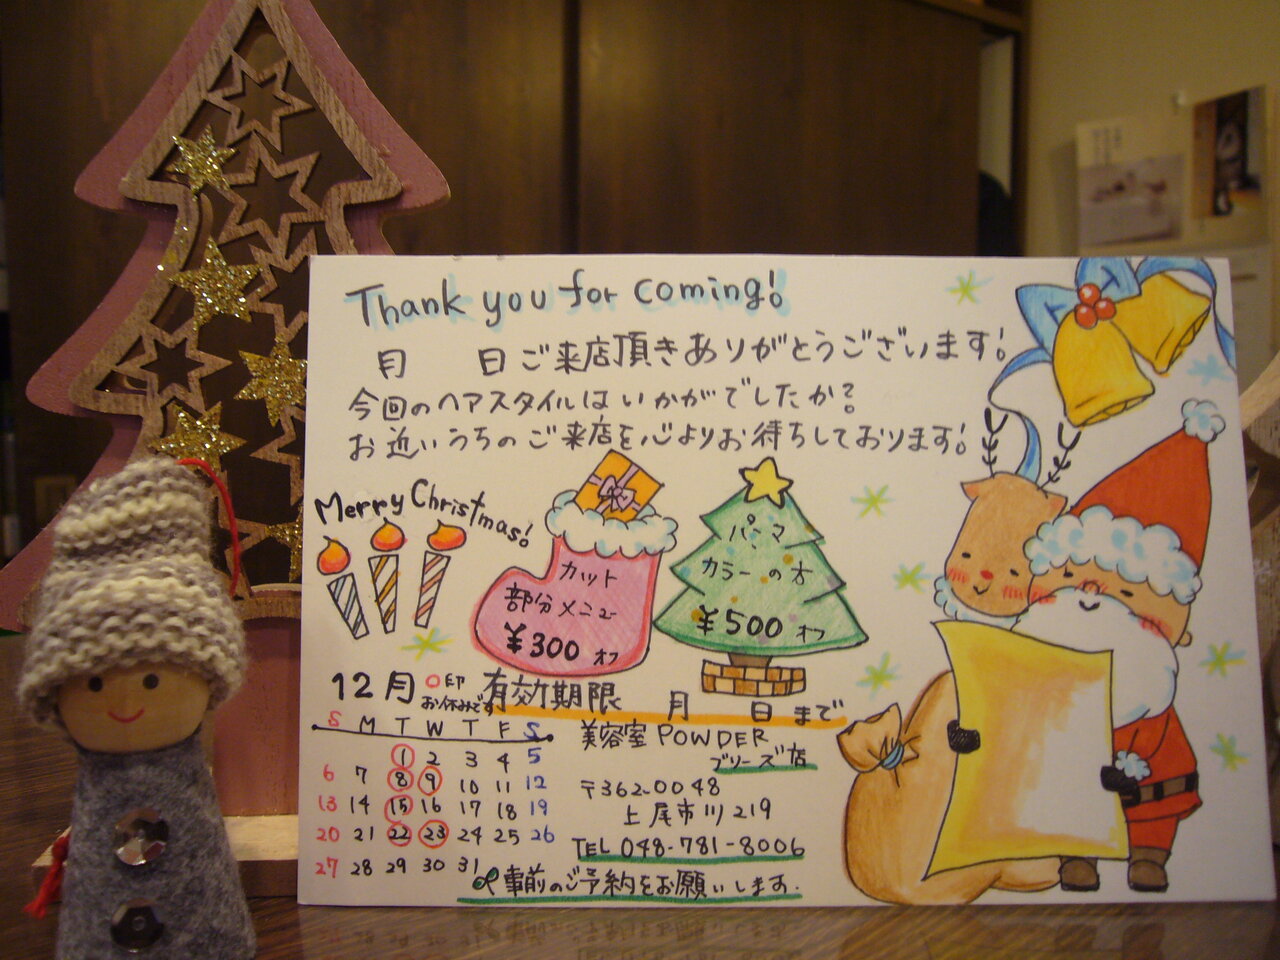 Thank you for coming!
月 日ご来店頂きありがとうございます!
今回のヘアスタイルはいかがでしたか?
お近いうちのご来店を心よりお待ちしております!
Merry Christmas!
カット
部分メニュー
¥300 オフ
パーマ
カラーの方
¥500 オフ
12月 ○印
お休みです
有効期限 月 日 まで
S M T W T F S
1 2 3 4 5
6 7 8 9 10 11 12
13 14 15 16 17 18 19
20 21 22 23 24 25 26
27 28 29 30 31
美容室 POWDER
ブリーズ店
〒362-0048
上尾市川219
TEL 048-781-8006
事前のご予約をお願いします.